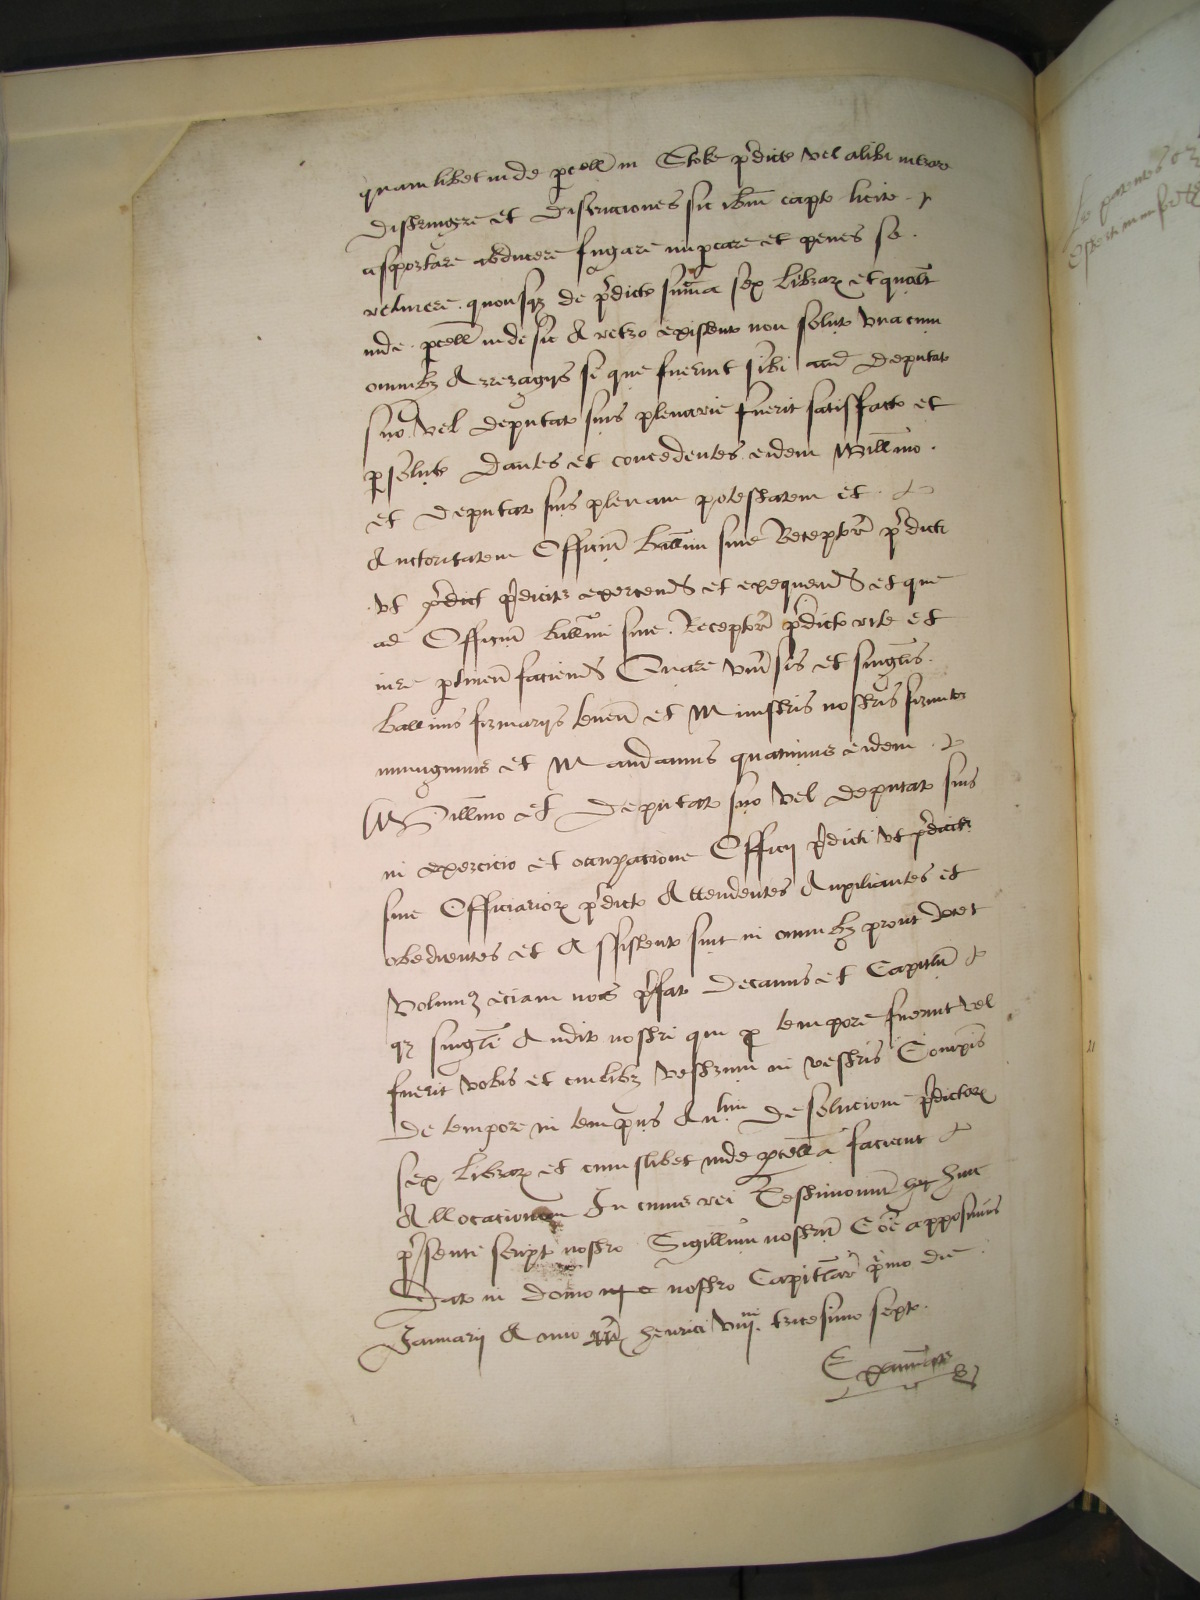 quamlibet inde pcell in Stoke pdict vel alibi intrare
distringere et districciones sic ibm capt licite &
asportare abducere fugare impcare et penes se
retinere quousqz de pdict summa sex librar et qualt
inde pcell inde sic A retro existent non solut vnacum
omnibz Arreragijs si que fuerint sibi aut deputat
suo vel deputat suis plenarie fuerit satisfact et
psolut dantes et concedentes eidem Willmo
et deputat suis plenam potestatem et &
Auctoritatem Officiu Ballivi sive Receptor pdicti
vt pdict pdicitz exercend et exequend et que
ad Officiu Ballivi sive Receptor pdict rite et
iure ptinen faciend Quare vniusis et singlis
Ballivis firmarijs tenen et Ministris nostris firmiter
iniungimus et Mandamus quatinus eidem &
Willmo et deputat suo vel deputat suis
in exercicio et occupacione Officij pdicti vt pdicitz
sive Officiarior pdict Attendentes Auxiliantes et
obedientes et Assistent sint in omnibz prout decet
Volumz eciam nos pfat Decanus et Capitlm &
qz singli Audit nostri qui p tempore fuerint vel
fuerit vobis et cuilibz vestrum in vestris Compis
de tempore in tempus de solucione pdictar
sex librar et cuiuslibet inde pcell faciant &
Allocacionem In cuius rei Testimoniu huic
psenti script nostro Sigillum nostru Coe apposuimus
Dat in domo nostro Capitlar primo die
Januarij Anno Henrici viij tricesimo sept
Examinatr